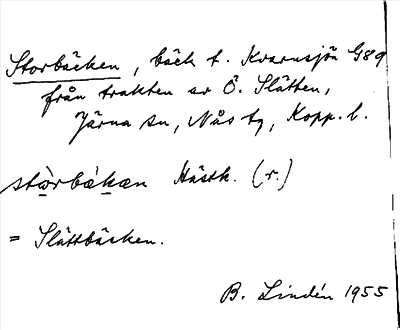 Storbäcken, bäck t. Kvarnsjön G89
från trakten av Ö. Slätten,
Järna sn, Nås tg, Kopp. l.
stòrbäkæn Hästk. (r.)
= Slättbäcken.
B. Lindén 1955